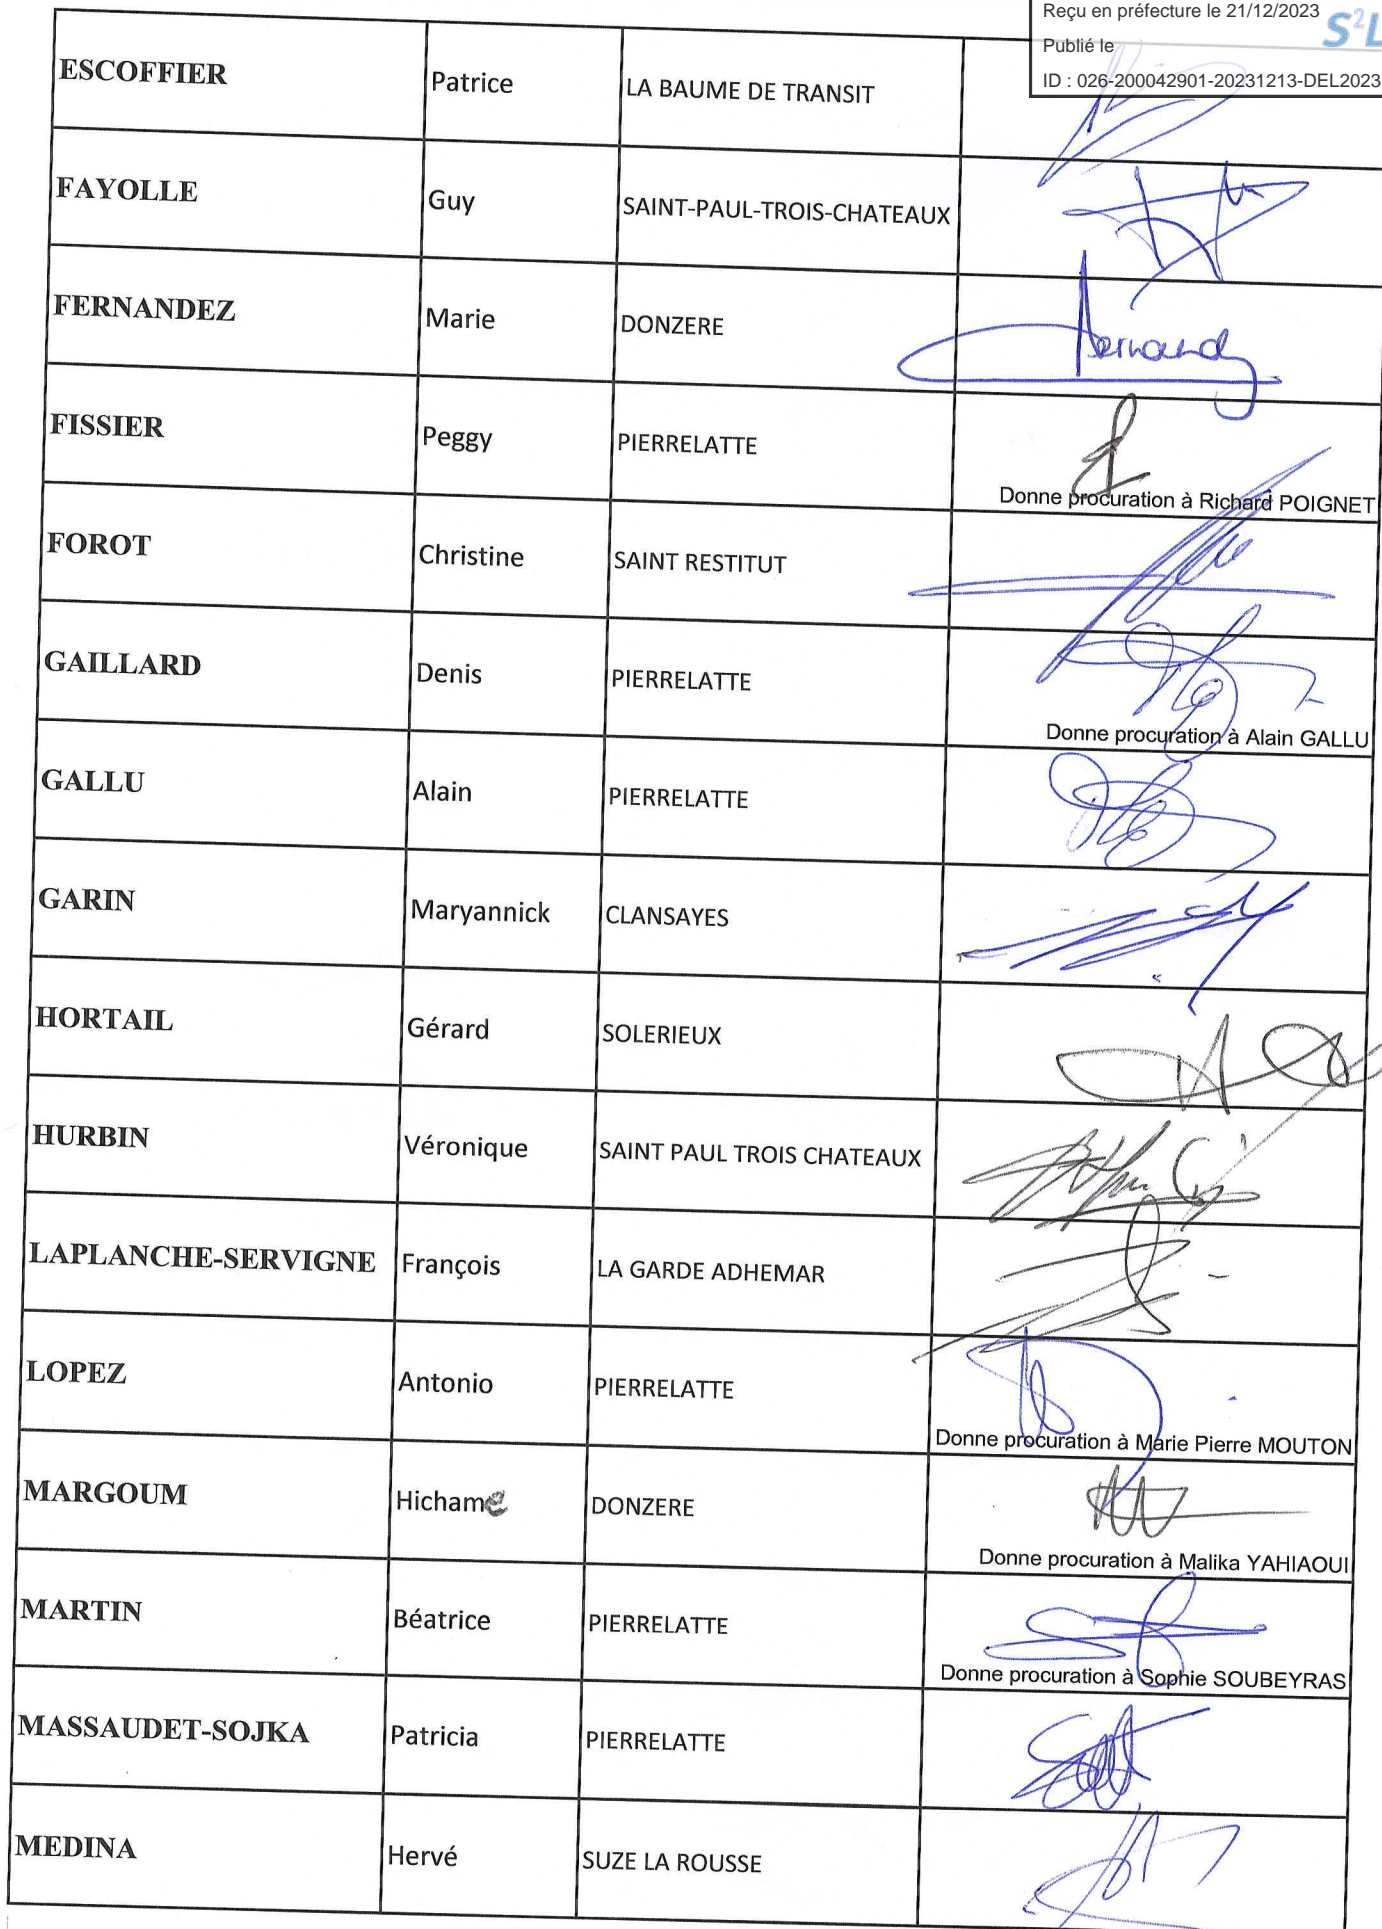 Reçu en préfecture le 21/12/2023
Publié le
S²L
ID : 026-200042901-20231213-DEL2023
ESCOFFIER Patrice LA BAUME DE TRANSIT
FAYOLLE Guy SAINT-PAUL-TROIS-CHATEAUX
FERNANDEZ Marie DONZERE
FISSIER Peggy PIERRELATTE
Donne procuration à Richard POIGNET
FOROT Christine SAINT RESTITUT
GAILLARD Denis PIERRELATTE
Donne procuration à Alain GALLU
GALLU Alain PIERRELATTE
GARIN Maryannick CLANSAYES
HORTAIL Gérard SOLERIEUX
HURBIN Véronique SAINT PAUL TROIS CHATEAUX
LAPLANCHE-SERVIGNE François LA GARDE ADHEMAR
LOPEZ Antonio PIERRELATTE
Donne procuration à Marie Pierre MOUTON
MARGOUM Hichame DONZERE
Donne procuration à Malika YAHIAOUI
MARTIN Béatrice PIERRELATTE
Donne procuration à Sophie SOUBEYRAS
MASSAUDET-SOJKA Patricia PIERRELATTE
MEDINA Hervé SUZE LA ROUSSE